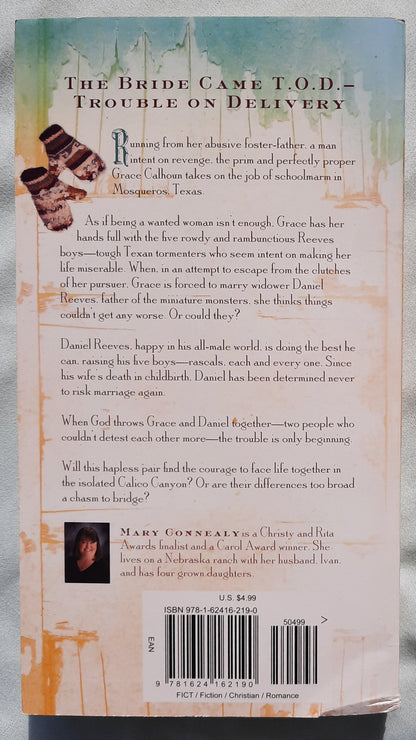 THE BRIDE CAME T.O.D.—
TROUBLE ON DELIVERY
Running from her abusive foster-father, a man
intent on revenge, the prim and perfectly proper
Grace Calhoun takes on the job of schoolmarm in
Mosqueros, Texas.
As if being a wanted woman isn't enough, Grace has her
hands full with the five rowdy and rambunctious Reeves
boys—tough Texan tormenters who seem intent on making her
life miserable. When, in an attempt to escape from the clutches
of her pursuer, Grace is forced to marry widower Daniel
Reeves, father of the miniature monsters, she thinks things
couldn't get any worse. Or could they?
Daniel Reeves, happy in his all-male world, is doing the best he
can, raising his five boys—rascals, each and every one. Since
his wife's death in childbirth, Daniel has been determined never
to risk marriage again.
When God throws Grace and Daniel together—two people who
couldn't detest each other more—the trouble is only beginning.
Will this hapless pair find the courage to face life together in
the isolated Calico Canyon? Or are their differences too broad
a chasm to bridge?
MARY CONNEALY is a Christy and Rita
Awards finalist and a Carol Award winner. She
lives on a Nebraska ranch with her husband, Ivan,
and has four grown daughters.
U.S. $4.99
ISBN 978-1-62416-219-0
50499 >
EAN
9 781624 162190
FICT / Fiction / Christian / Romance